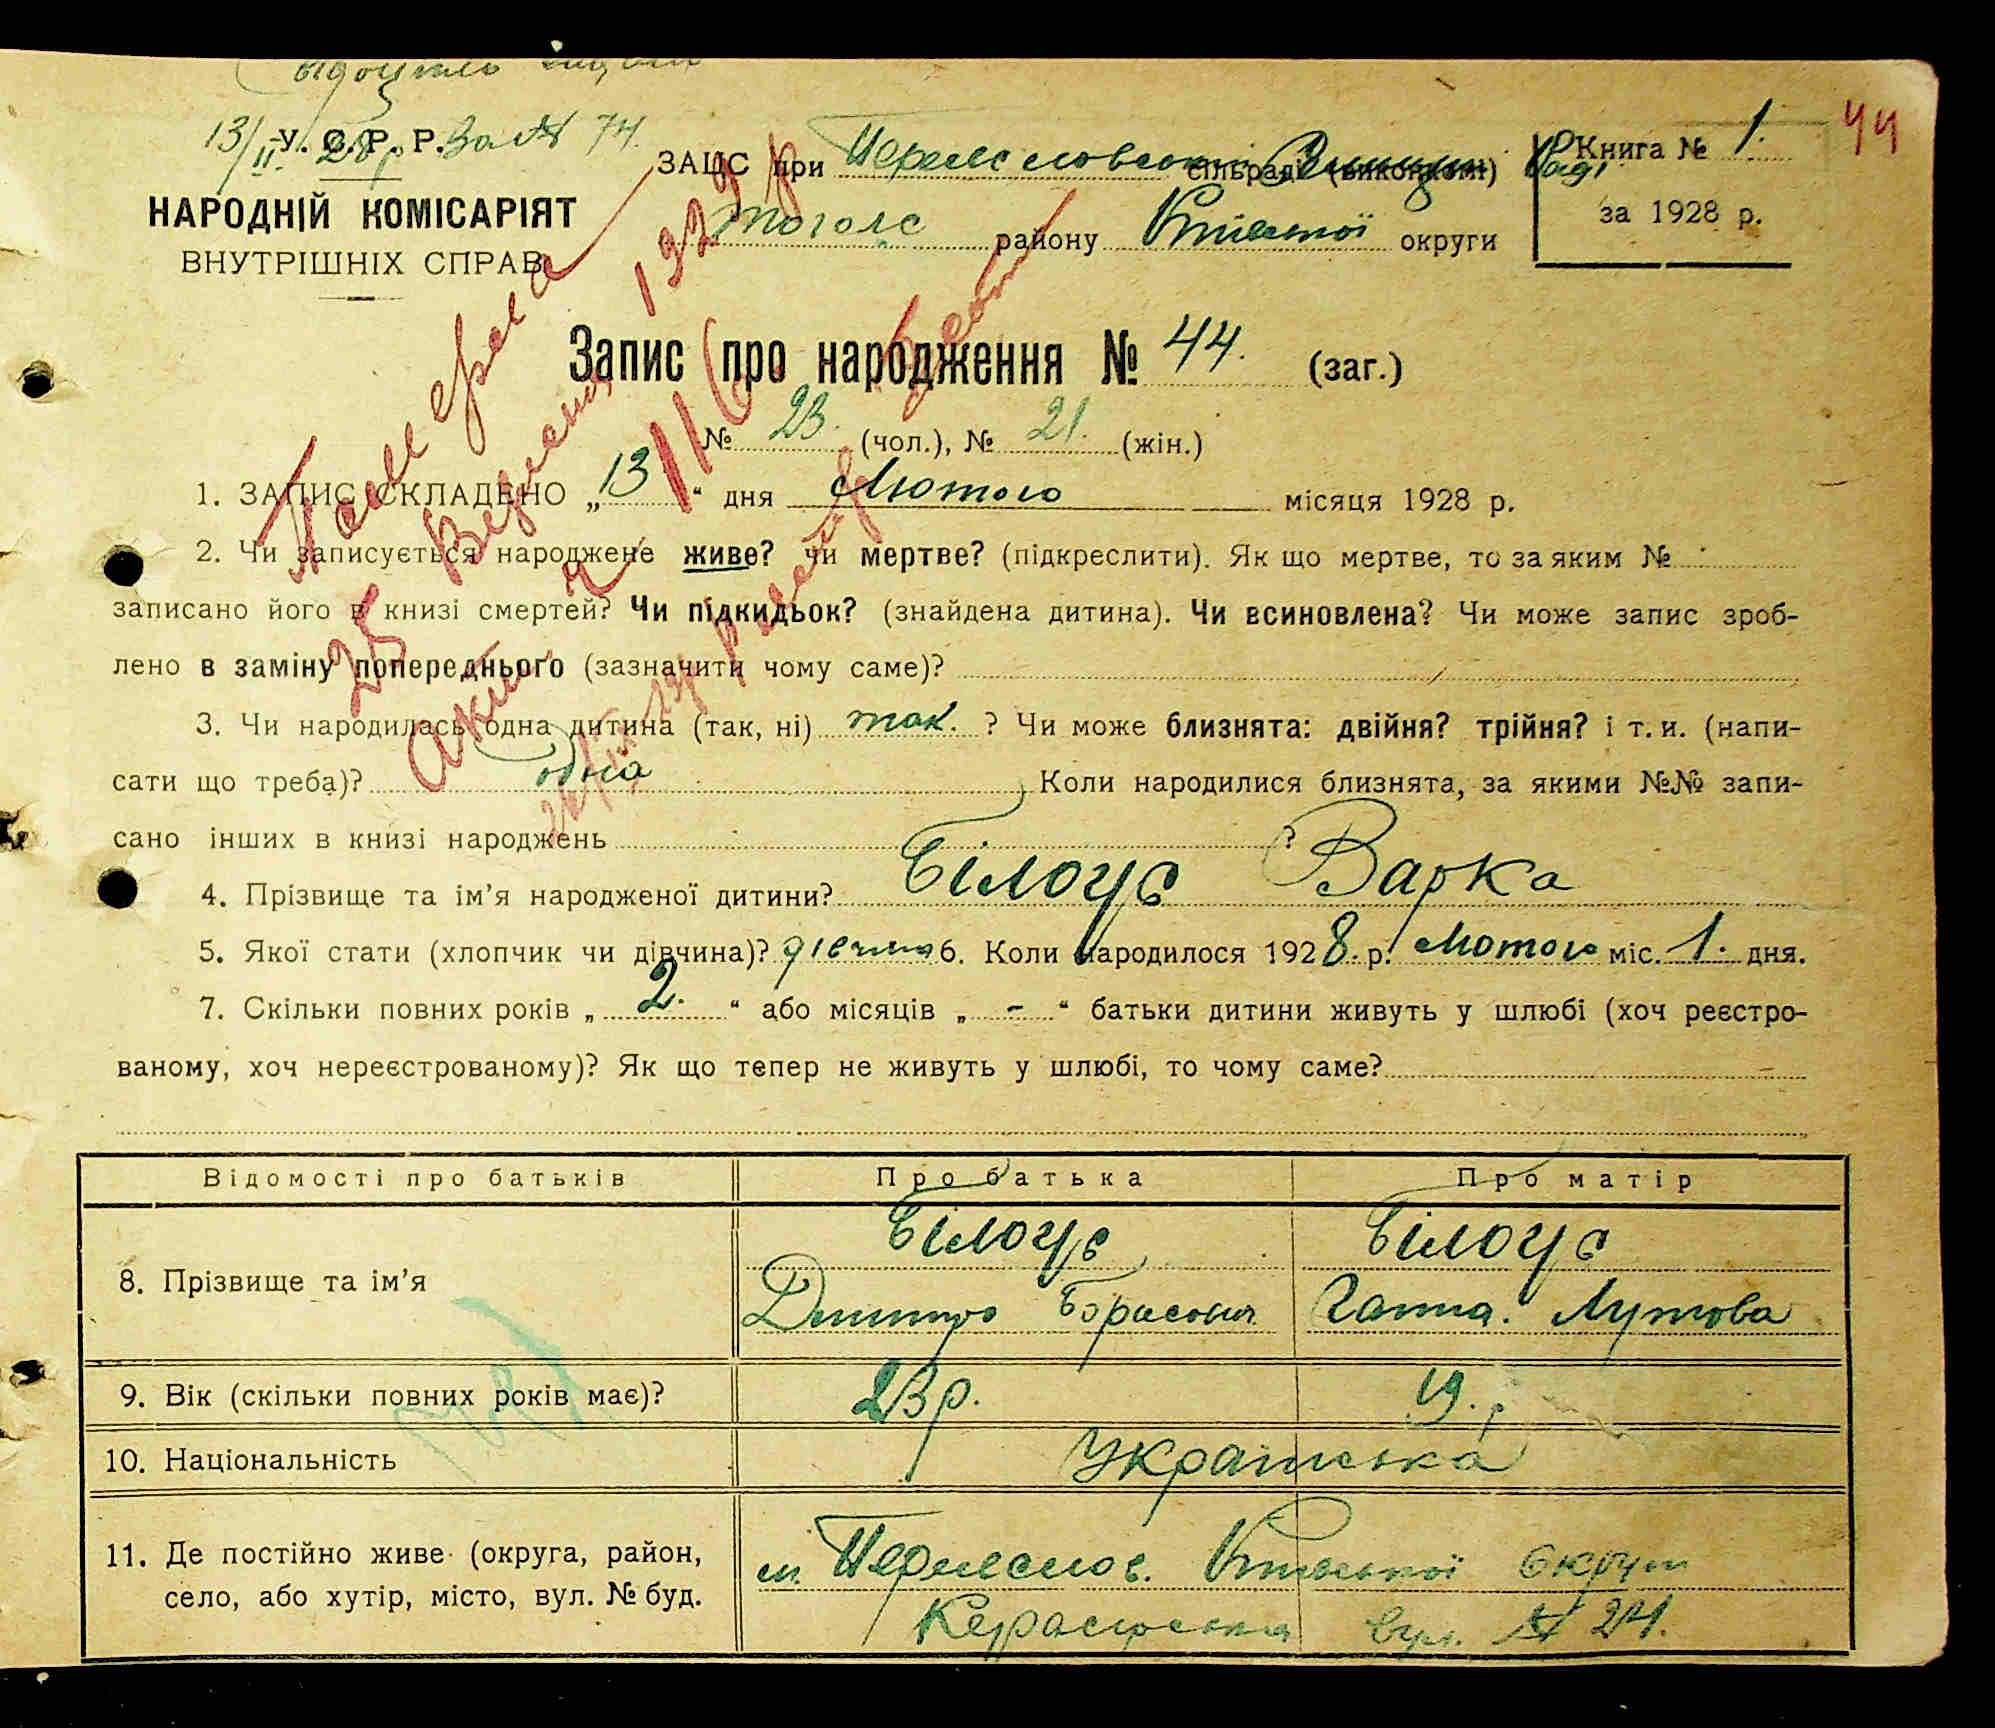 13/II 28р За № 74.
У. С. Р. Р.
НАРОДНІЙ КОМІСАРІЯТ
ВНУТРІШНІХ СПРАВ
ЗАЦС при сільраді (виконкомі)
району округи
Книга № 1.
за 1928 р.
44
Запис про народження № 44. (заг.)
№ 23. (чол.), № 21. (жін.)
1. ЗАПИС СКЛАДЕНО „13“ дня Лютого місяця 1928 р.
2. Чи записується народжене живе? чи мертве? (підкреслити). Як що мертве, то за яким №
записано його в книзі смертей? Чи підкидьок? (знайдена дитина). Чи всиновлена? Чи може запис зроб-
лено в заміну попереднього (зазначити чому саме)?
3. Чи народилась одна дитина (так, ні) так. ? Чи може близнята: двійня? трійня? і т. и. (напи-
сати що треба)? одна Коли народилися близнята, за якими №№ запи-
сано інших в книзі народжень ?
4. Прізвище та ім'я народженої дитини? Білоус Варка
5. Якої стати (хлопчик чи дівчина)? дівчина 6. Коли народилося 1928. р. Лютого міс. 1. дня.
7. Скільки повних років „ 2. “ або місяців „ - “ батьки дитини живуть у шлюбі (хоч реєстро-
ваному, хоч нереєстрованому)? Як що тепер не живуть у шлюбі, то чому саме?
Відомості про батьків Про батька Про матір
8. Прізвище та ім'я Білоус Білоус
Дмитро Борисович Ганна.
9. Вік (скільки повних років має)? 23 р. 19. р
10. Національність Українська
11. Де постійно живе (округа, район,
село, або хутір, місто, вул. № буд.
м. Округи
вул. № 24.